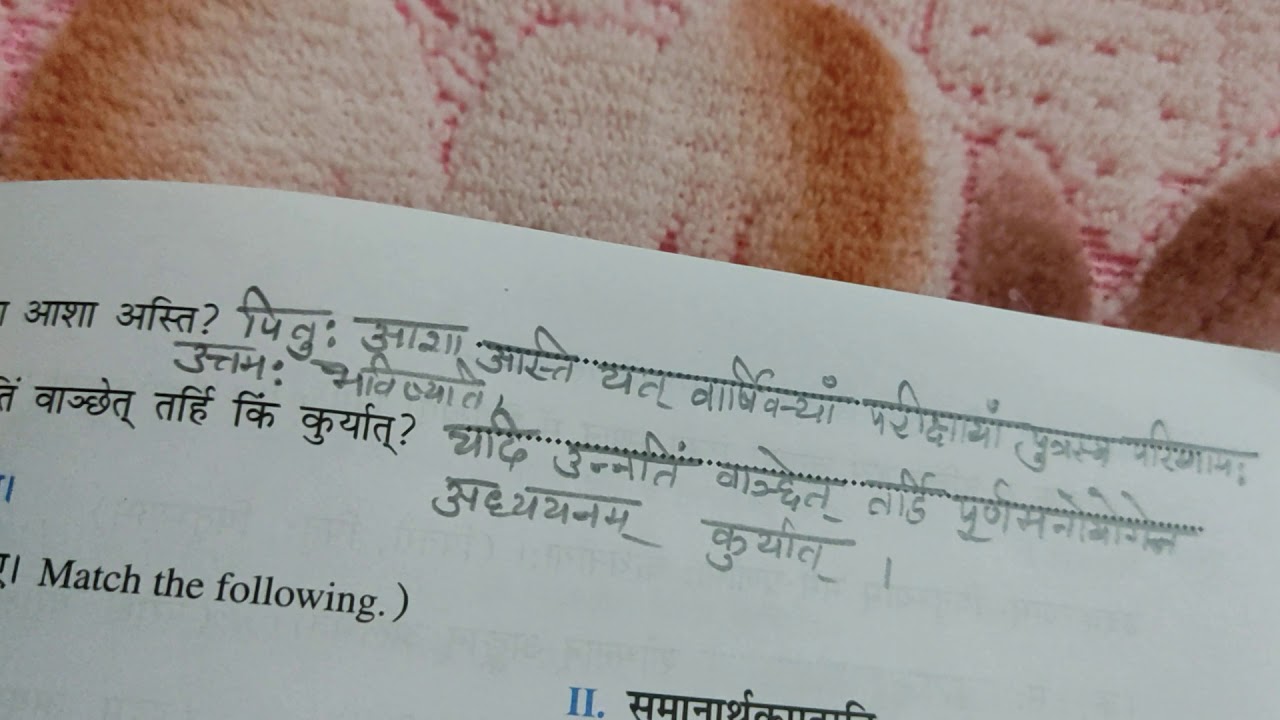 आशा अस्ति? पितुः आशा अस्ति यत् वार्षिक्यां परीक्षायां पुत्रस्य परिणामः
उत्तमः भविष्यति।
वाञ्छेत् तर्हि किं कुर्यात्? यदि उन्नतिं वाञ्छेत् तर्हि पूर्णमनोयोगेन
अध्ययनम् कुर्यात् ।
Match the following.)
II.